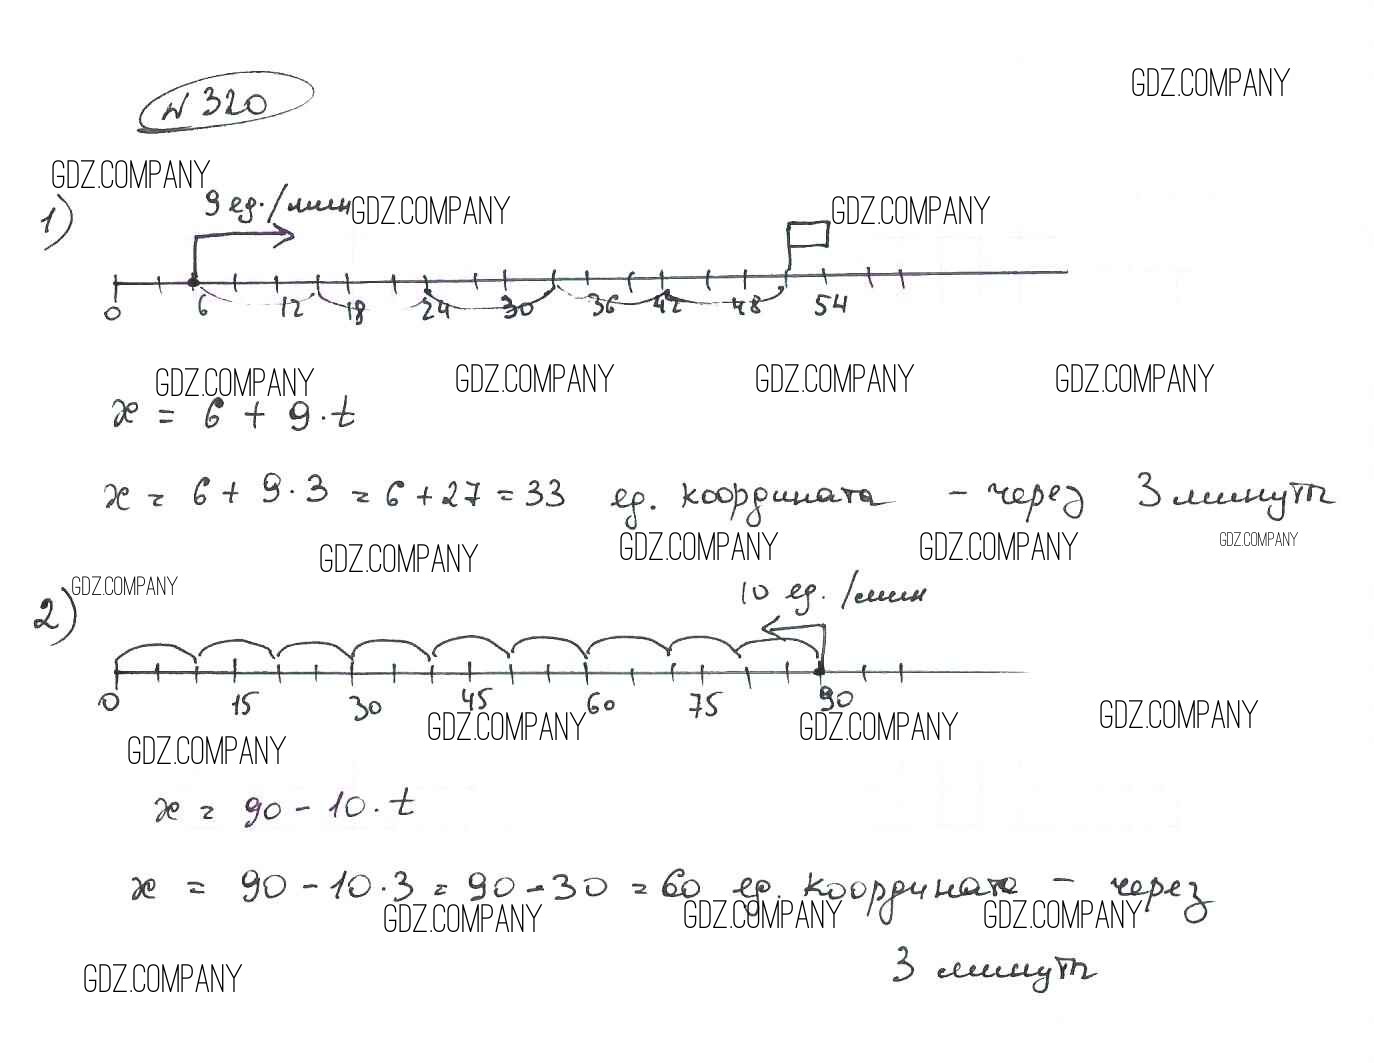 N 320
GDZ.COMPANY
GDZ.COMPANY
1) 9 ед./мин GDZ.COMPANY GDZ.COMPANY
0 6 12 18 24 30 36 42 48 54
GDZ.COMPANY GDZ.COMPANY GDZ.COMPANY GDZ.COMPANY
x = 6 + 9 · t
x = 6 + 9 · 3 = 6 + 27 = 33 ед. координата – через 3 минуты
GDZ.COMPANY GDZ.COMPANY GDZ.COMPANY GDZ.COMPANY
GDZ.COMPANY
2) 10 ед./мин
0 15 30 45 60 75 90
GDZ.COMPANY GDZ.COMPANY GDZ.COMPANY GDZ.COMPANY
x = 90 – 10 · t
x = 90 – 10 · 3 = 90 – 30 = 60 ед. координата – через
GDZ.COMPANY GDZ.COMPANY GDZ.COMPANY
3 минуты
GDZ.COMPANY